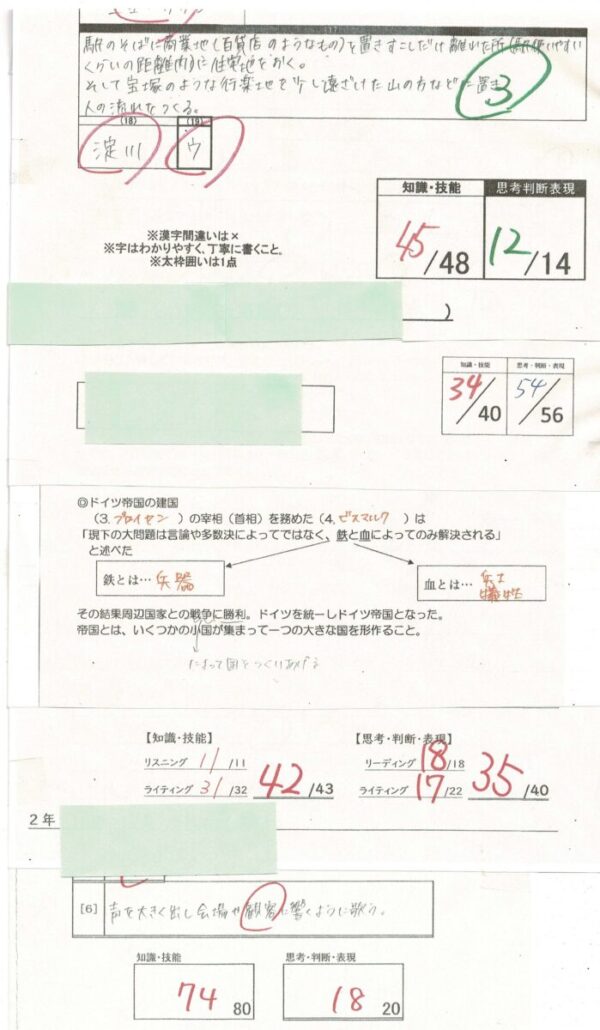 駅のそばに商業地(百貨店のようなもの)を置きすこしだけ離れた所(駅使いやすい
くらいの距離内)に住宅地をおく。
そして宝塚のような行楽地を少し遠ざけた山の方などに置き
人の流れをつくる。
3
(18) (19)
淀川 ウ
知識・技能 思考判断表現
45/48 12/14
※漢字間違いは×
※字はわかりやすく、丁寧に書くこと。
※太枠囲いは1点
)
知識・技能 思考・判断・表現
34/40 54/56
◎ドイツ帝国の建国
(3. プロイセン )の宰相(首相)を務めた(4. ビスマルク )は
「現下の大問題は言論や多数決によってではなく、鉄と血によってのみ解決される」
と述べた
鉄とは… 兵器 血とは… 兵士
犠牲
その結果周辺国家との戦争に勝利。ドイツを統一しドイツ帝国となった。
帝国とは、いくつかの小国が集まって一つの大きな国を形作ること。
によって国をつくりあげる
【知識・技能】 【思考・判断・表現】
リスニング 11/11 リーディング 18/18
ライティング 31/32 42/43 ライティング 17/22 35/40
2年
[6] 声を大きく出し会場や観客に響くように歌う。
知識・技能 思考・判断・表現
74 80 18 20